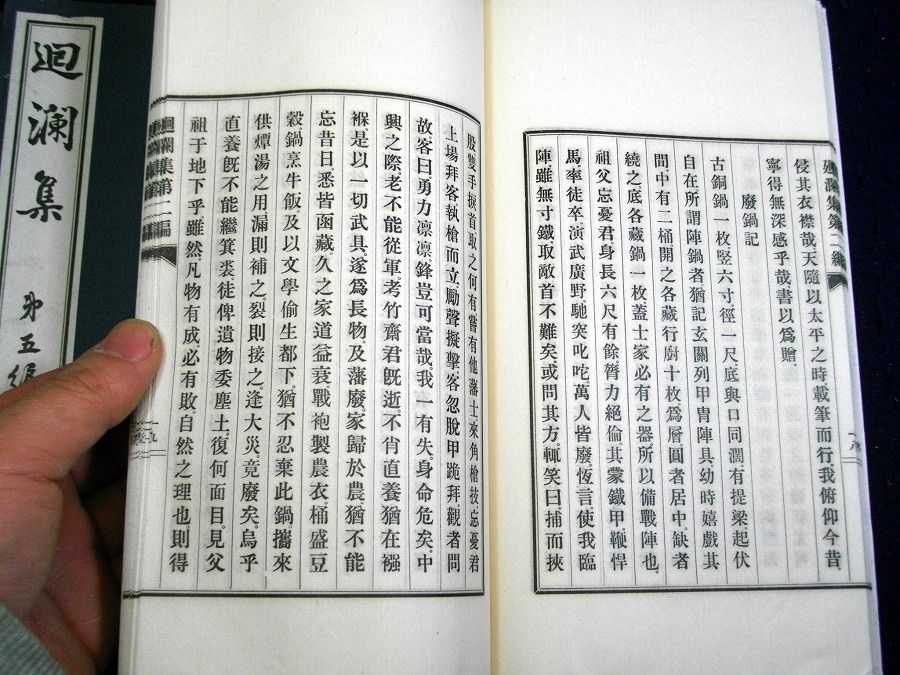 迴瀾集
第五編
侵其衣襟哉天隨以太平之時載筆而行我俯仰今昔
寧得無深感乎哉書以爲贈
廢鍋記
古銅鍋一枚竪六寸徑一尺底與口同濶有提梁起伏
自在所謂陣鍋者猶記玄關列甲冑陣具幼時嬉戲其
間中有二桶開之各藏行廚十枚爲層圓者居中缺者
繞之底各藏鍋一枚蓋士家必有之器所以備戰陣也
祖父忘憂君身長六尺有餘膂力絕倫其蒙鐵甲鞭悍
馬率徒卒演武廣野馳突叱咤萬人皆廢恆言使我臨
陣雖無寸鐵取敵首不難矣或問其方輒笑曰捕而挾
股雙手捩首取之何有嘗有他藩士來角槍技忘憂君
上場拜客執槍而立勵聲擬擊客忽脫甲跪拜觀者問
故客曰勇力凛凛鋒豈可當哉我一有失身命危矣中
興之際老不能從軍考竹齋君旣逝不肖直養猶在襁
褓是以一切武具遂爲長物及藩廢家歸於農猶不能
忘昔日悉皆函藏久之家道益衰戰袍製農衣桶盛豆
穀鍋烹牛飯及以文學偷生都下猶不忍棄此鍋攜來
供煙湯之用漏則補之裂則接之逢大災竟廢矣烏乎
直養旣不能繼箕裘徒俾遺物委塵土復何面目見父
祖于地下乎雖然凡物有成必有敗自然之理也則得
迴瀾集第二編